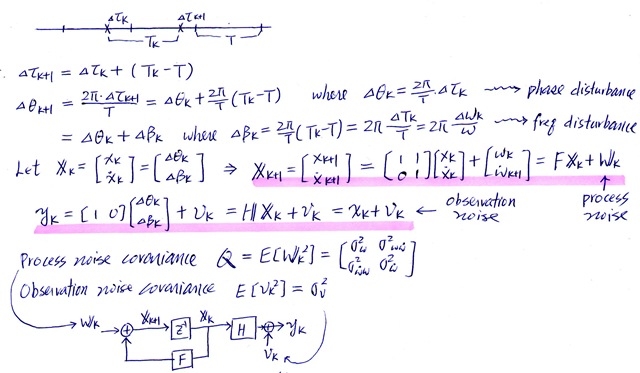 Δτₖ Δτₖ₊₁
Tₖ T
Δτₖ₊₁ = Δτₖ + (Tₖ-T)
Δθₖ₊₁ = 2π·Δτₖ₊₁/T = Δθₖ + 2π/T (Tₖ-T) where Δθₖ = 2π/T · Δτₖ ⟿ phase disturbance
= Δθₖ + Δβₖ where Δβₖ = 2π/T (Tₖ-T) = 2π ΔTₖ/T = 2π Δωₖ/ω ⟿ freq disturbance
Let 𝕏ₖ = [xₖ; ẋₖ] = [Δθₖ; Δβₖ] ⇒ 𝕏ₖ₊₁ = [xₖ₊₁; ẋₖ₊₁] = [1 1; 0 1][xₖ; ẋₖ] + [wₖ; ẇₖ₊₁] = F𝕏ₖ + 𝕎ₖ
yₖ = [1 0][Δθₖ; Δβₖ] + vₖ = H𝕏ₖ + vₖ = xₖ + vₖ ← observation noise
process noise
Process noise covariance Q = E[𝕎ₖ²] = [σ²w σ²wẇ; σ²ẇw σ²ẇ]
Observation noise covariance E[vₖ²] = σᵥ²
𝕎ₖ → + 𝕏ₖ₊₁ → Z⁻¹ 𝕏ₖ → H → + → yₖ
F
vₖ